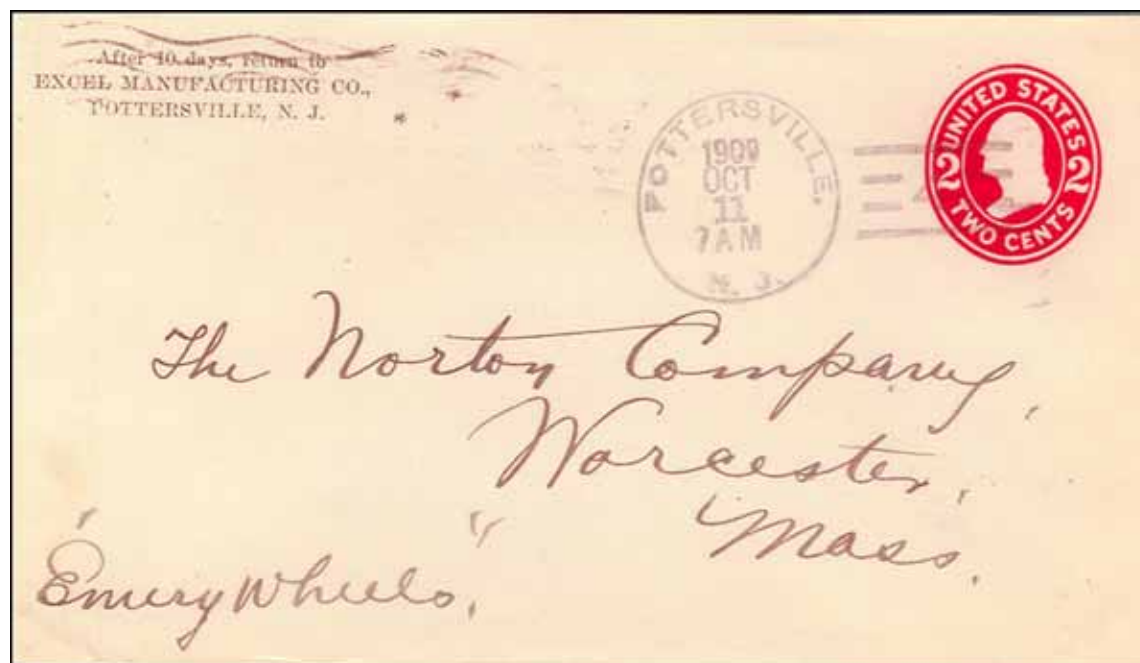 After 10 days, return to
EXCEL MANUFACTURING CO.,
POTTERSVILLE, N. J.
POTTERSVILLE,
1909
OCT
11
7 AM
N. J.
UNITED STATES
2 2
TWO CENTS
The Norton Company,
Worcester,
Mass.
"Emery Wheels,"